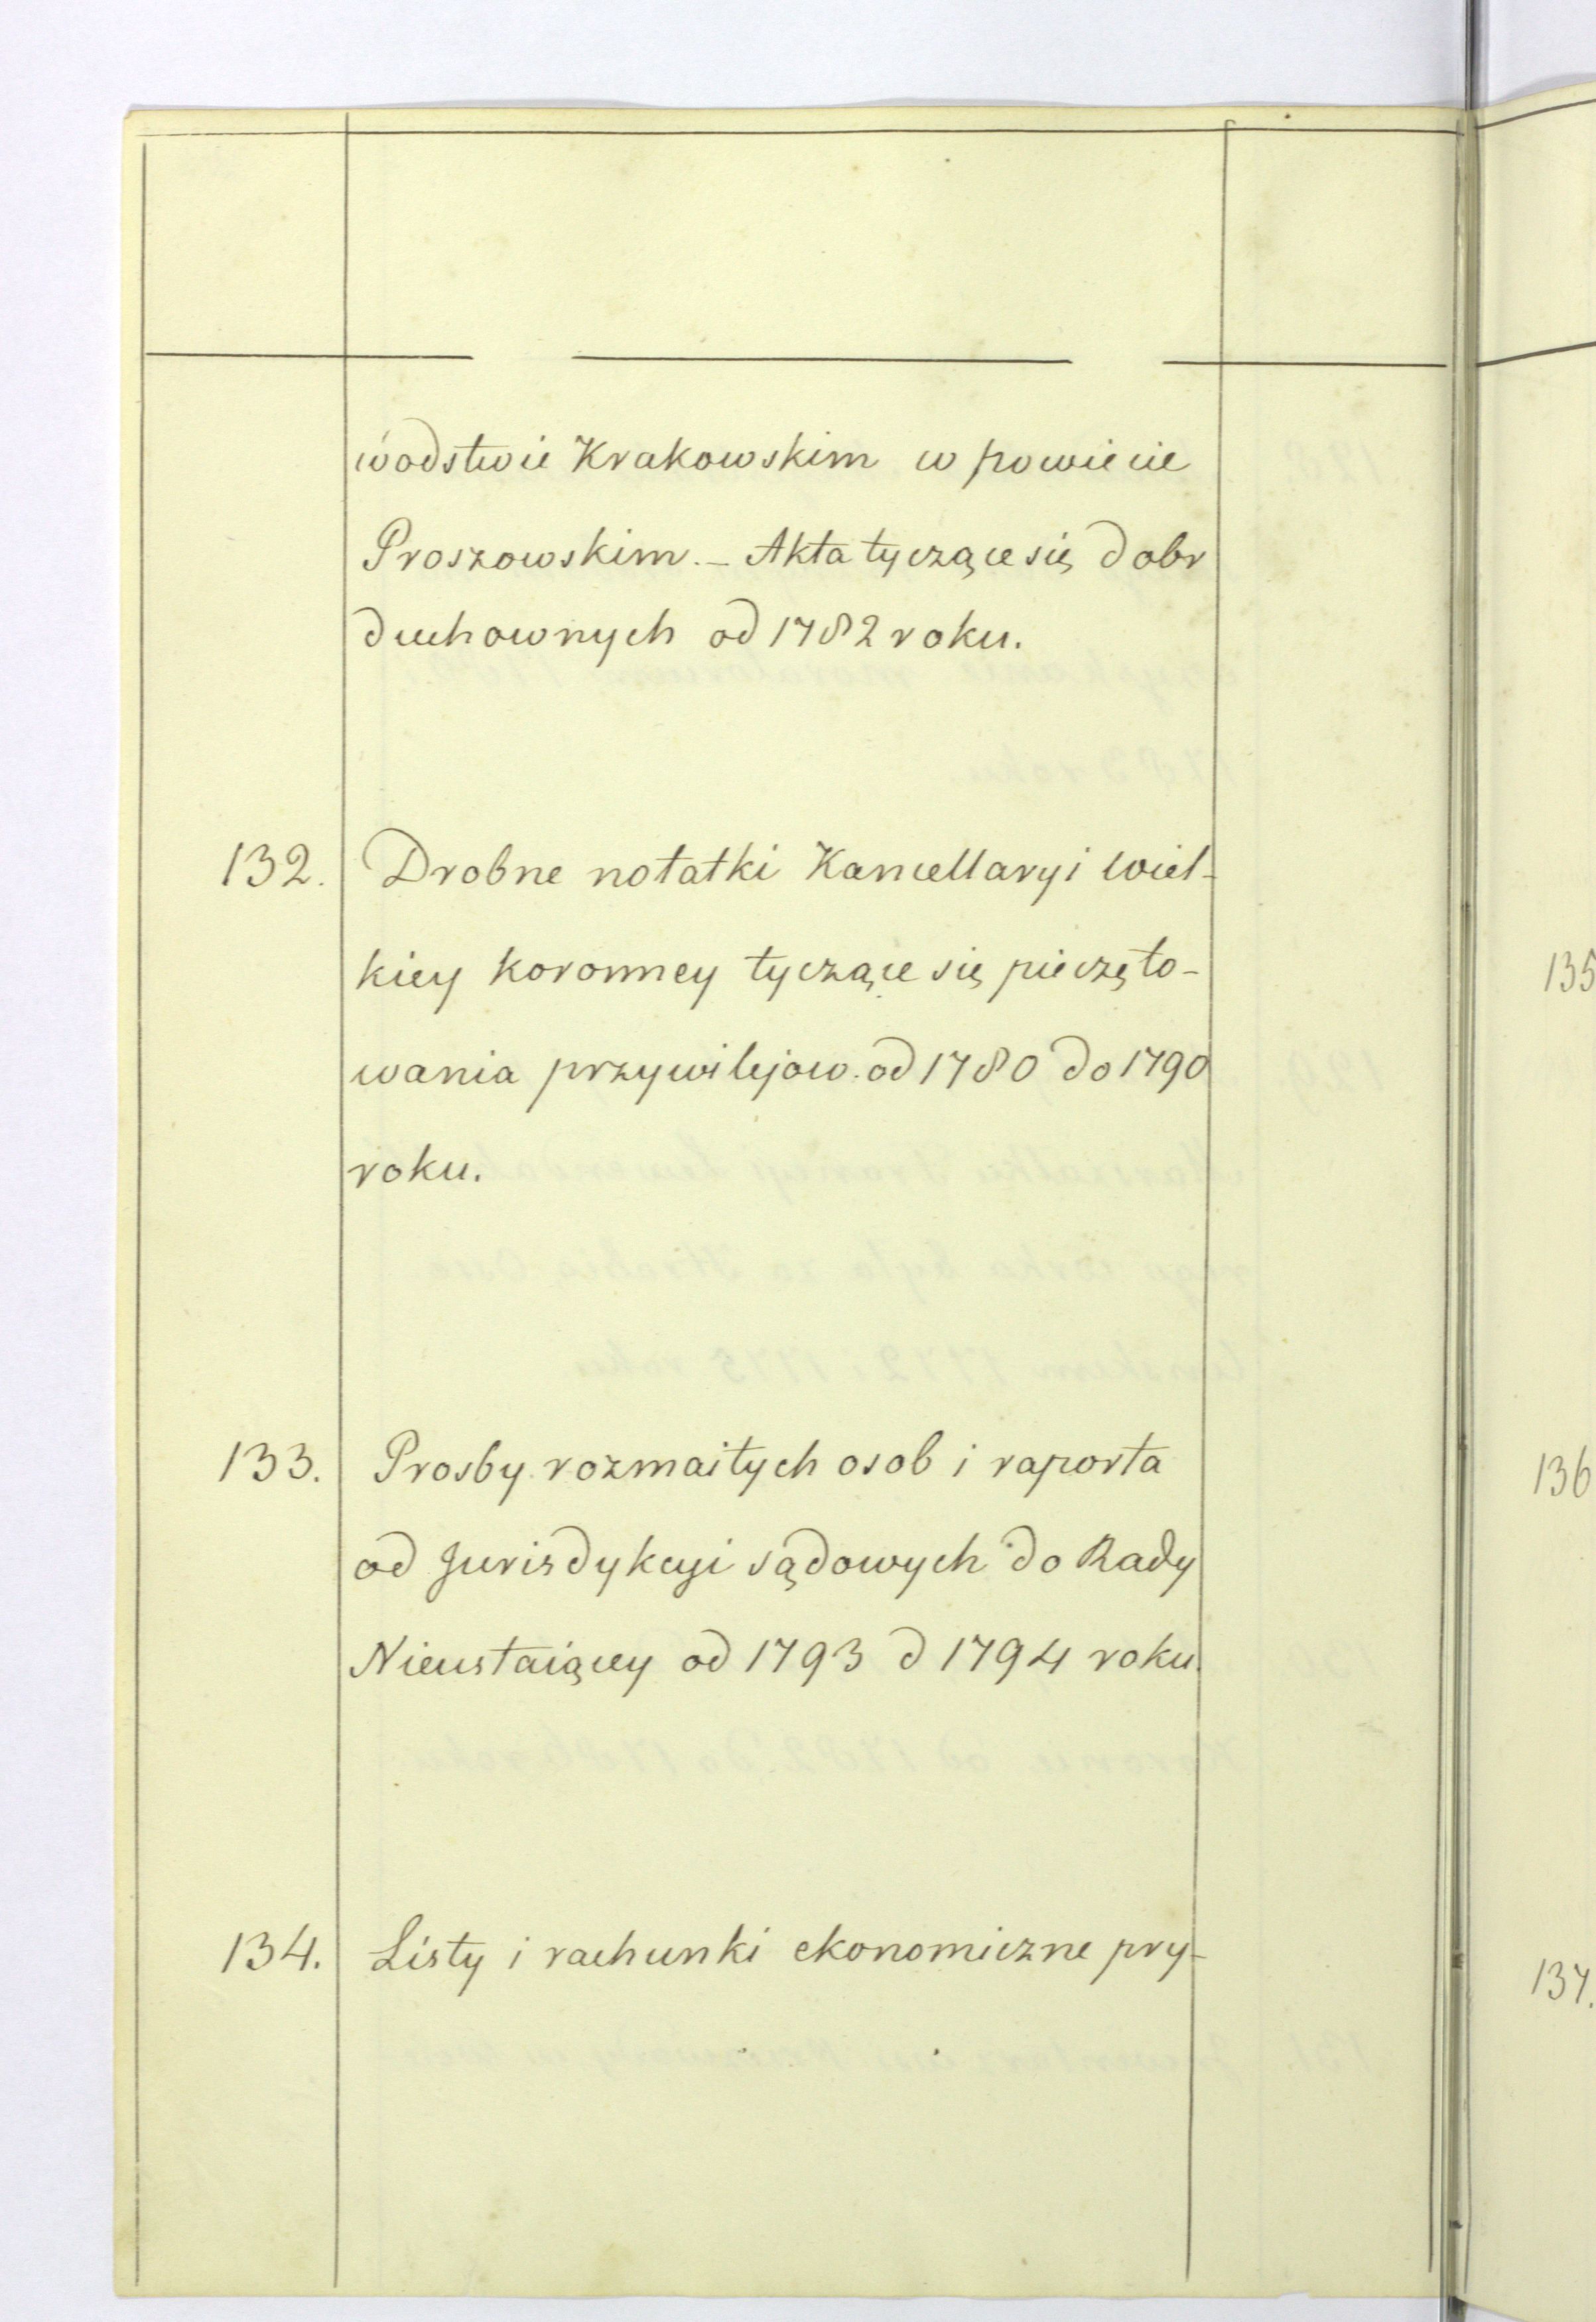 wodstwie Krakowskim w powiecie
Proszowskim. – Akta tyczące się dobr
duchownych od 1782 roku.
132. Drobne notatki Kancellaryi Wiel-
kiey koronney tyczące się pieczęto-
wania przywilejow. od 1780 do 1790
roku.
133. Prosby rozmaitych osob i raporta
od Jurisdykcyi sądowych do Rady
Nieustaiącey od 1793 d 1794 roku.
134. Listy i rachunki ekonomiczne pry-
135
136
137.